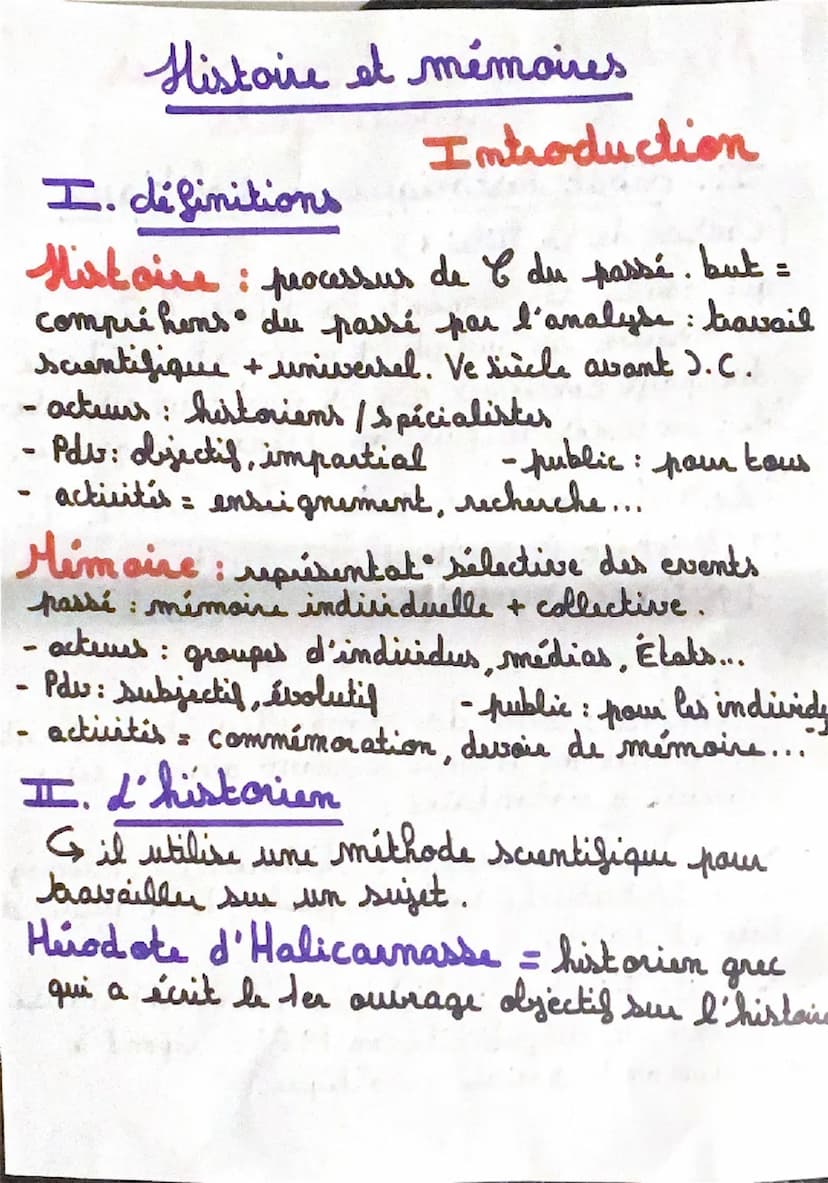 Histoire et mémoires
Introduction
I. définitions
Histoire : processus de C du passé. but =
compréhens° du passé par l'analyse : travail
scientifique + universel. Ve siècle avant J.C.
- acteurs : historiens / spécialistes
- Pdv : objectif, impartial - public : pour tous
- activités = enseignement, recherche...
Mémoire : représentat° sélective des events
passé : mémoire individuelle + collective.
- acteurs : groupes d'individus, médias, États...
- Pdv : subjectif, évolutif - public : pour les individus
- activités = commémoration, devoir de mémoire...
II. L'historien
↪ il utilise une méthode scientifique pour
travailler sur un sujet.
Hérodote d'Halicarnasse = historien grec
qui a écrit le 1er ouvrage objectif sur l'histoire